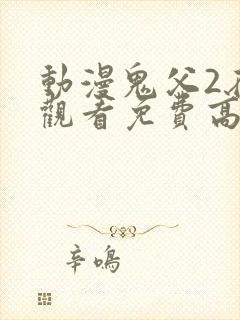 動漫鬼父2
觀看免費高
辛鳴